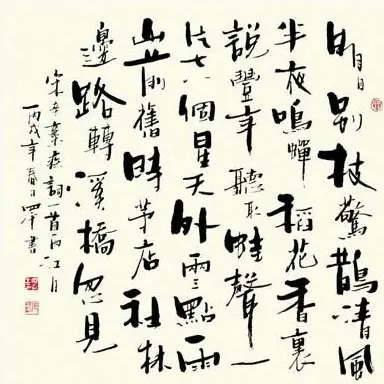 明月別枝驚鵲清風
半夜鳴蟬稻花香裏
說豐年聽取蛙聲一
片七八個星天外兩三點雨
山前舊時茅店社林
邊路轉溪橋忽見
宋辛棄疾詞一首西江月
丙戌年春日書